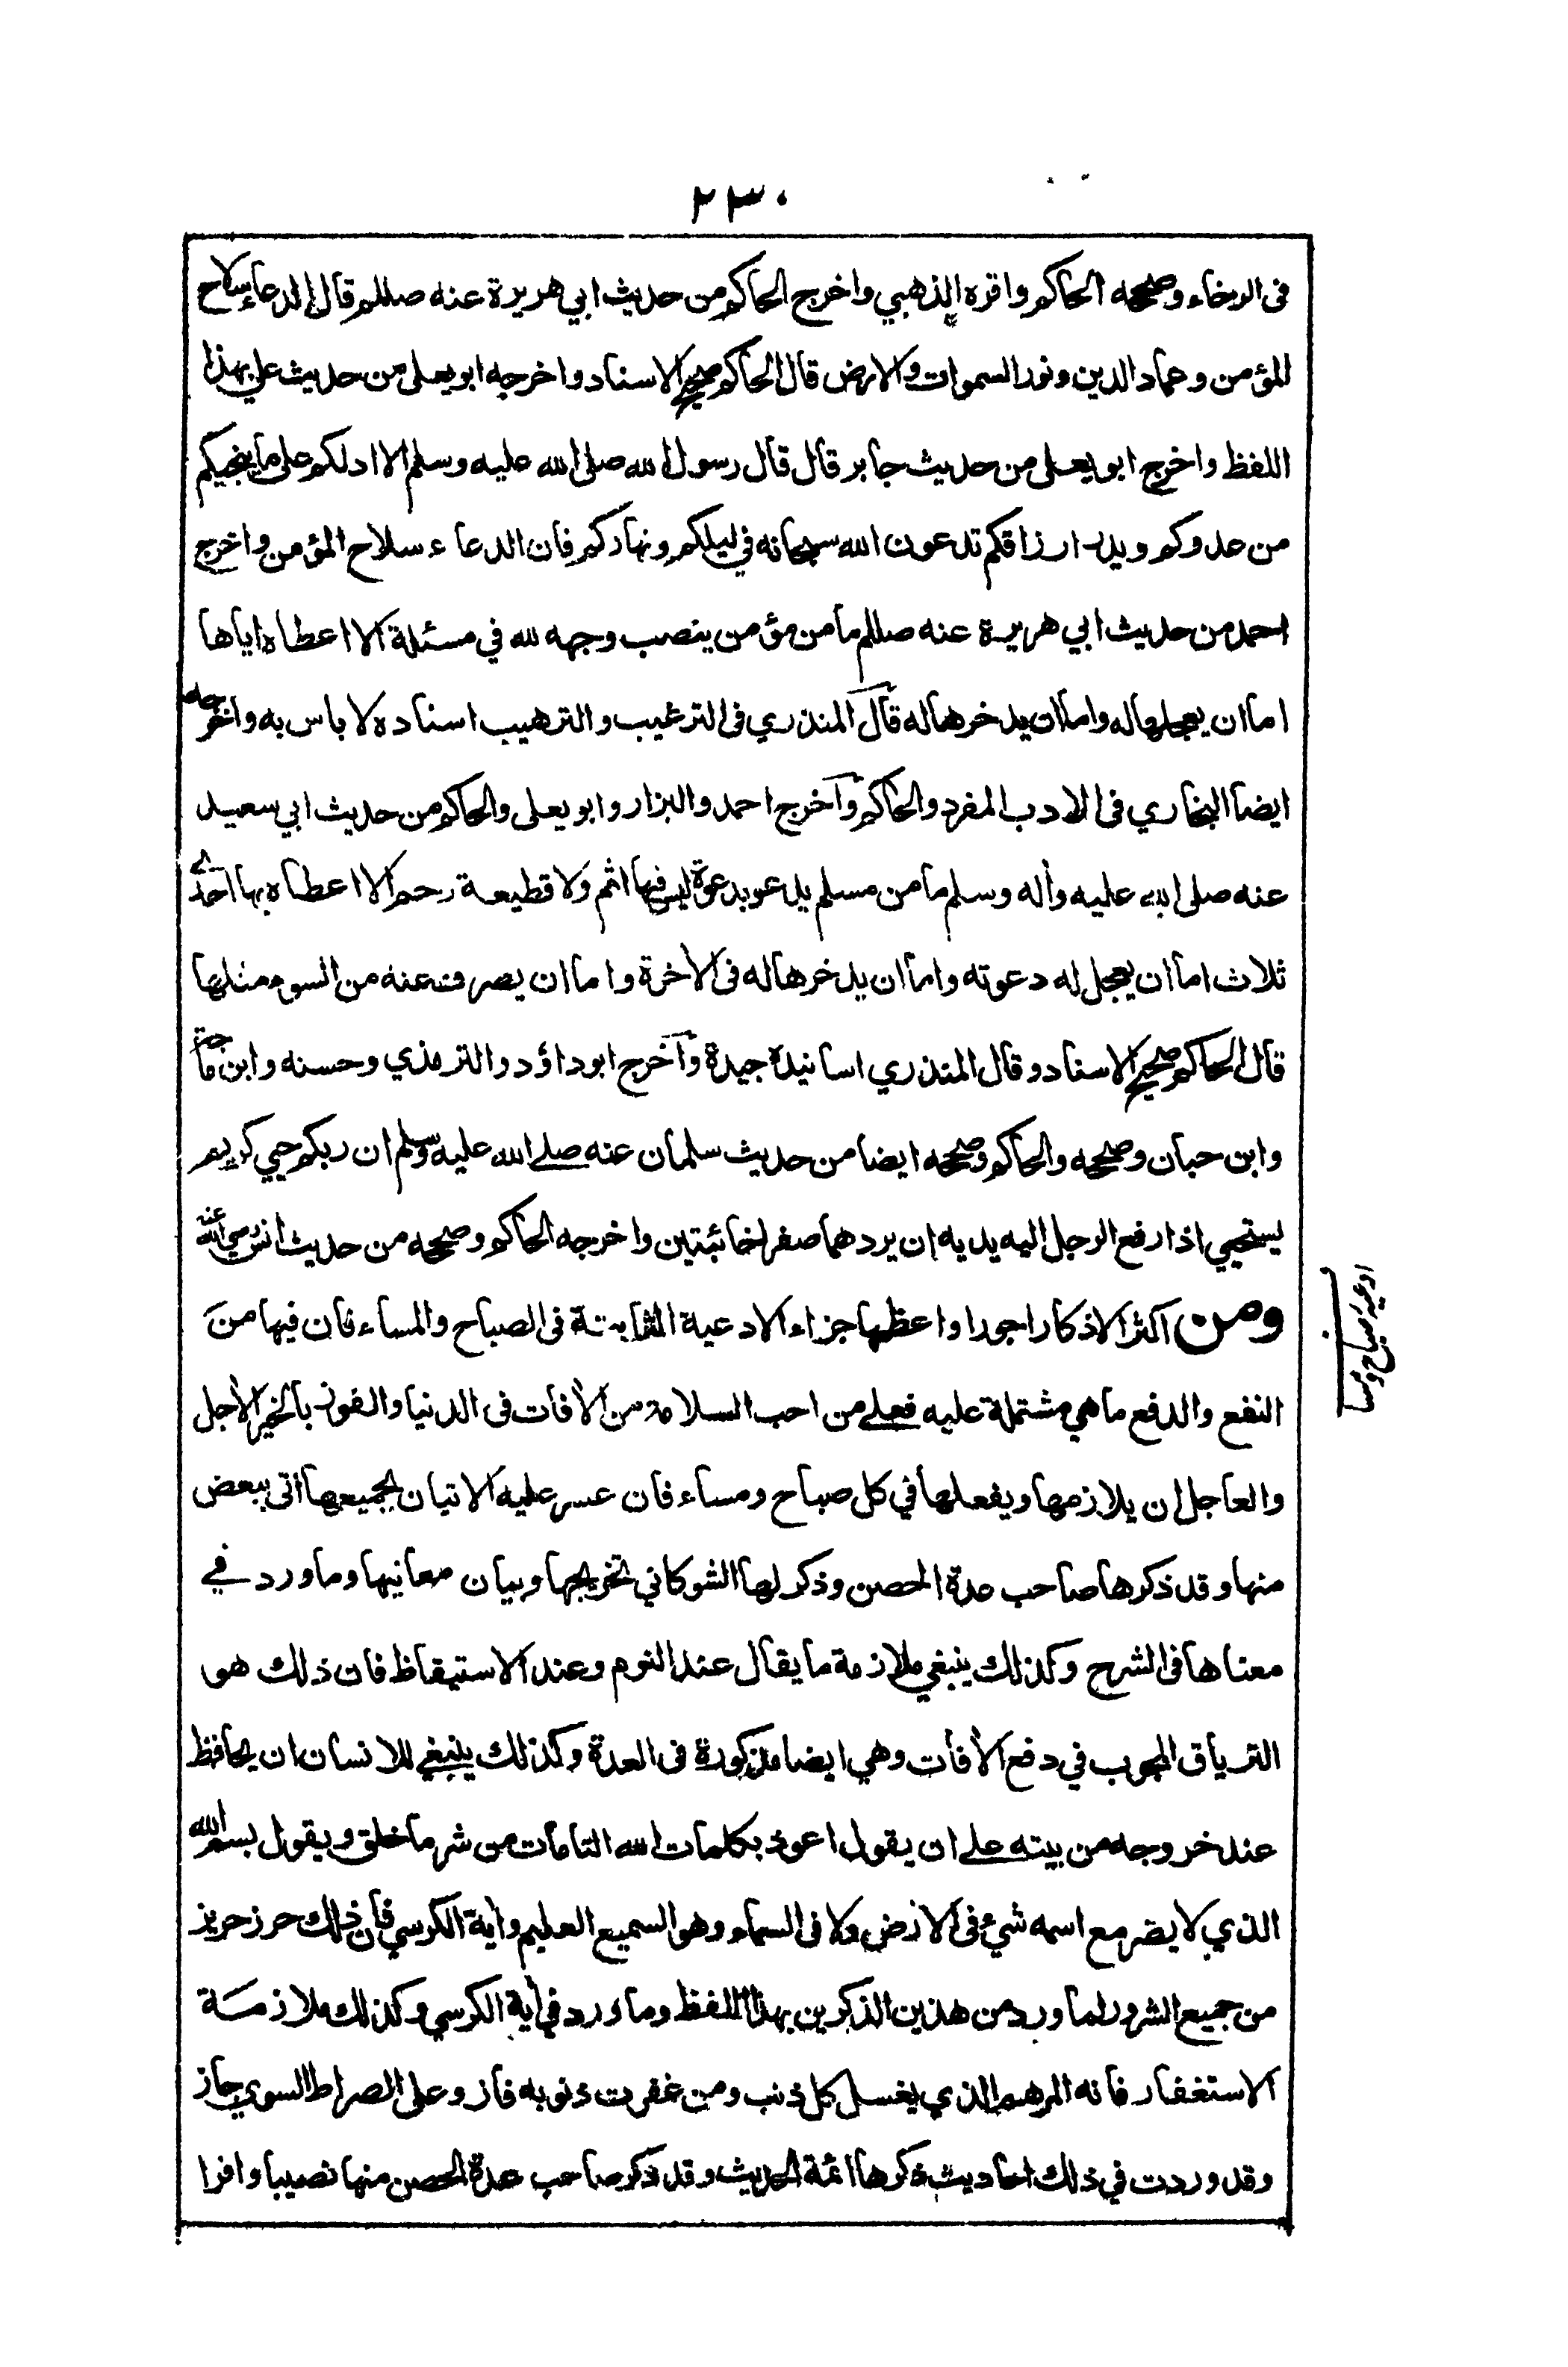 ٢٣٠
فى الرخاء وصححه الحاكم واقره الذهبي واخرج الحاكم من حديث ابي هريرة عنه صللم قال الدعاء سلاح
المؤمن وعماد الدين ونور السموات والارض قال الحاكم صحيح الاسناد واخرجه ابو يعلى من حديث علي بهذا
اللفظ واخرج ابو يعلى من حديث جابر قال قال رسول الله صلى الله عليه وسلم الا ادلكم على ما ينجيكم
من عدوكم ويدر ارزاقكم تدعون الله سبحانه في ليلكم ونهاركم فان الدعاء سلاح المؤمن واخرج
احمد من حديث ابي هريرة عنه صللم ما من مؤمن ينصب وجهه لله في مسئلة الا اعطاه اياها
اما ان يعجلها له واما ان يدخرها له قال المنذري فى الترغيب والترهيب اسناده لا باس به واخرجه
ايضا البخاري فى الادب المفرد والحاكم وآخرج احمد والبزار وابو يعلى والحاكم من حديث ابي سعيد
عنه صلى الله عليه وأله وسلم ما من مسلم يدعو بدعوة ليس فيها اثم ولا قطيعة رحم الا اعطاه بها احدى
ثلاث اما ان يعجل له دعوته واما ان يدخرها له فى الأخرة واما ان يصرف عنه من السوء مثلها
قال الحاكم صحيح الاسناد وقال المنذري اسانيده جيدة وآخرج ابو داؤد والترمذي وحسنه وابن ماجة
وابن حبان وصححه والحاكم وصححه ايضا من حديث سلمان عنه صلے الله عليه وسلم ان ربكم حيي كريم
يستحيي اذا رفع الرجل اليه يديه ان يردهما صفرا خائبتين واخرجه الحاكم وصححه من حديث انس رضي الله عنه
ومن اكثر الاذكار اجورا واعظمها جزاء الادعية الثابتة فى الصباح والمساء فان فيها من
النفع والدفع ما هي مشتملة عليه فعلے من احب السلامة من الأفات فى الدنيا والفوز بالخير الأجل
والعاجل ان يلازمها ويفعلها في كل صباح ومساء فان عسر عليه الاتيان بجميعها أتى ببعض
منها وقد ذكرها صاحب عدة الحصن وذكر لها الشوكاني تخريجها وبيان معانيها وما ورد في
معناها فى الشرح وكذلك ينبغي ملازمة ما يقال عند النوم وعند الاستيقاظ فان ذلك هو
الترياق المجرب في دفع الأفات وهي ايضا مذكورة فى العدة وكذلك ينبغي للانسان ان يحافظ
عند خروجه من بيته علے ان يقول اعوذ بكلمات الله التامات من شر ما خلق ويقول بسم الله
الذي لا يضر مع اسمه شيء فى الارض ولا فى السماء وهو السميع العليم وأية الكرسي فان ذلك حرز حريز
من جميع الشرور لما ورد من هذين الذكرين بهذا اللفظ وما ورد في أية الكرسي وكذلك ملازمة
الاستغفار فانه المرهم الذي يغسل كل ذنب ومن غفرت ذنوبه فاز وعلى الصراط السوي جاز
وقد وردت في ذلك احاديث ذكرها ائمة الحديث وقد ذكر صاحب عدة الحصن منها نصيبا وافرا
ادعيه صباح ومسا